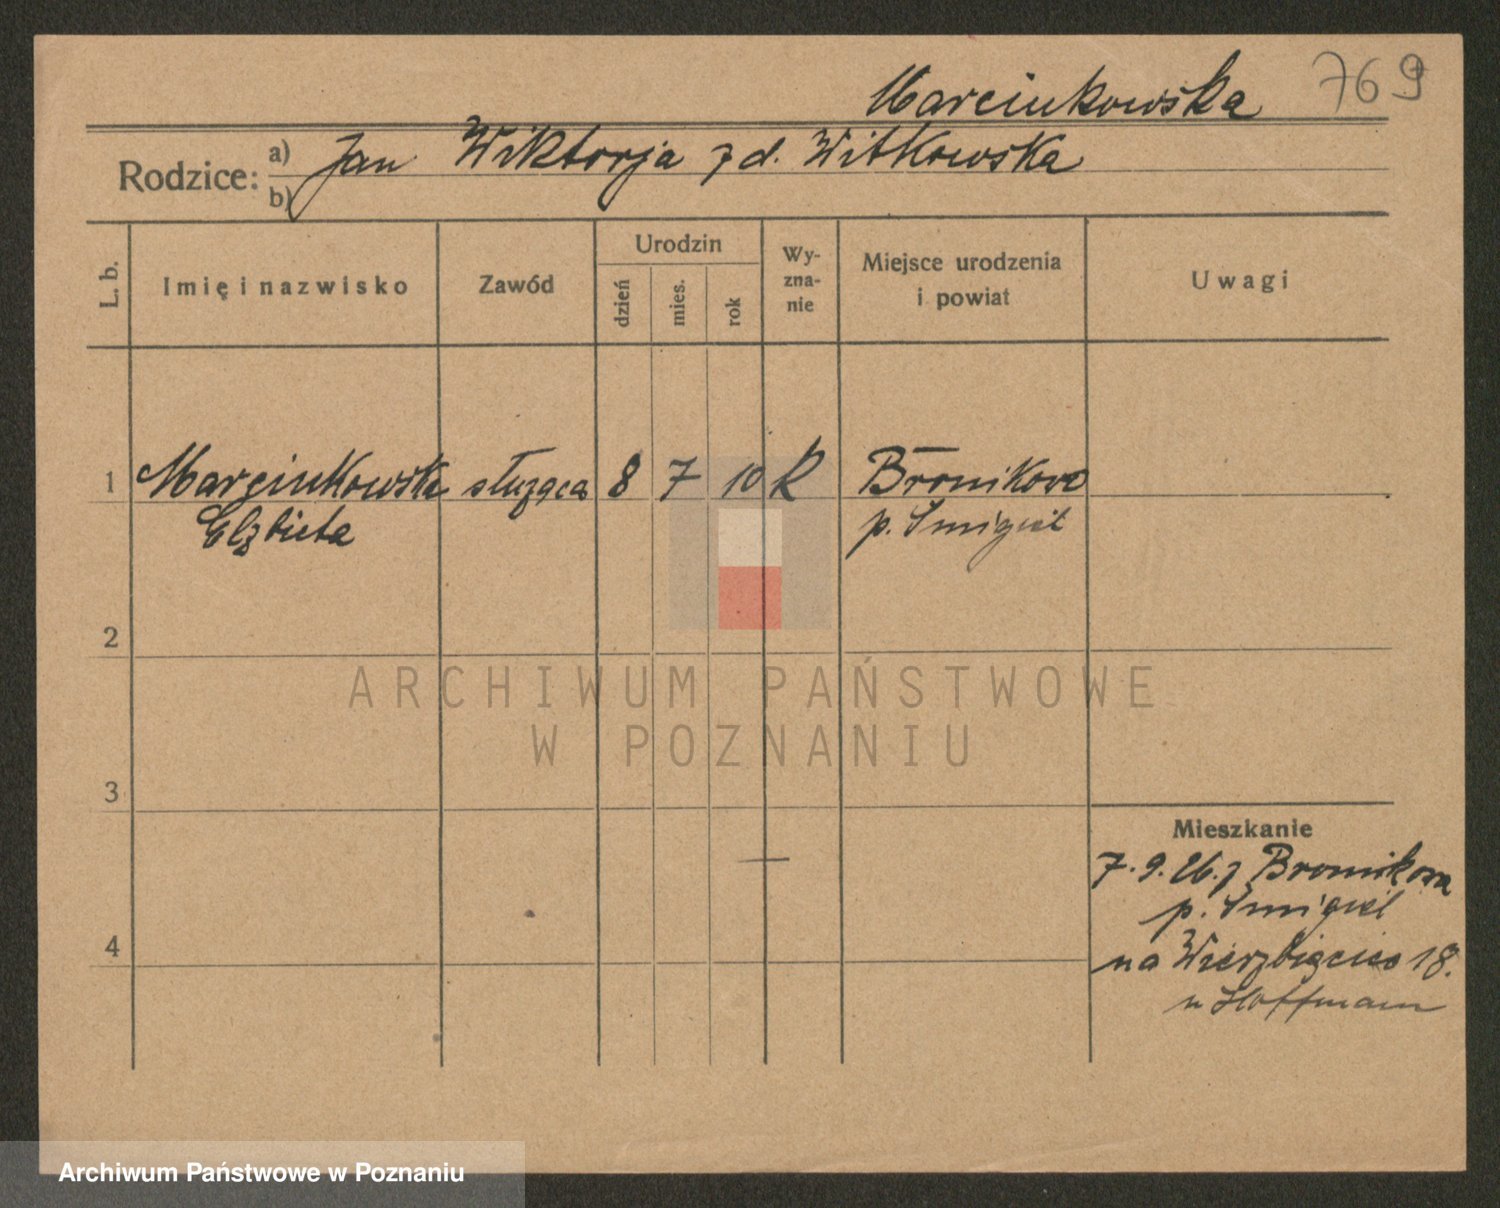 Marcinkowska 769
Rodzice: a) Jan Wiktorja z d. Witkowska
b)
L. b. Imię i nazwisko Zawód Urodzin dzień mies. rok Wy-zna-nie Miejsce urodzenia i powiat Uwagi
1 Marcinkowska służąca 8 7 10 R Bronikowo
Elzbieta p. Smigiel
2
ARCHIWUM PAŃSTWOWE
W POZNANIU
3
Mieszkanie
7.9.26. z Bronikowa
p. Smigiel
4
na Wierzbięcice 18.
u Hoffmann
Archiwum Państwowe w Poznaniu